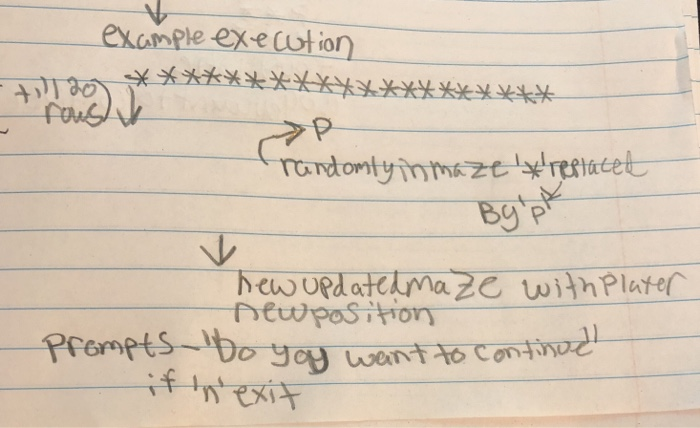 example execution
* * * * * * * * * * * * * * * * * * * *
till 20
rows
P
randomly in maze '*' replaced
By 'p'
new updated maze with Player
new position
Prompts - "Do you want to continue"
if 'n' exit